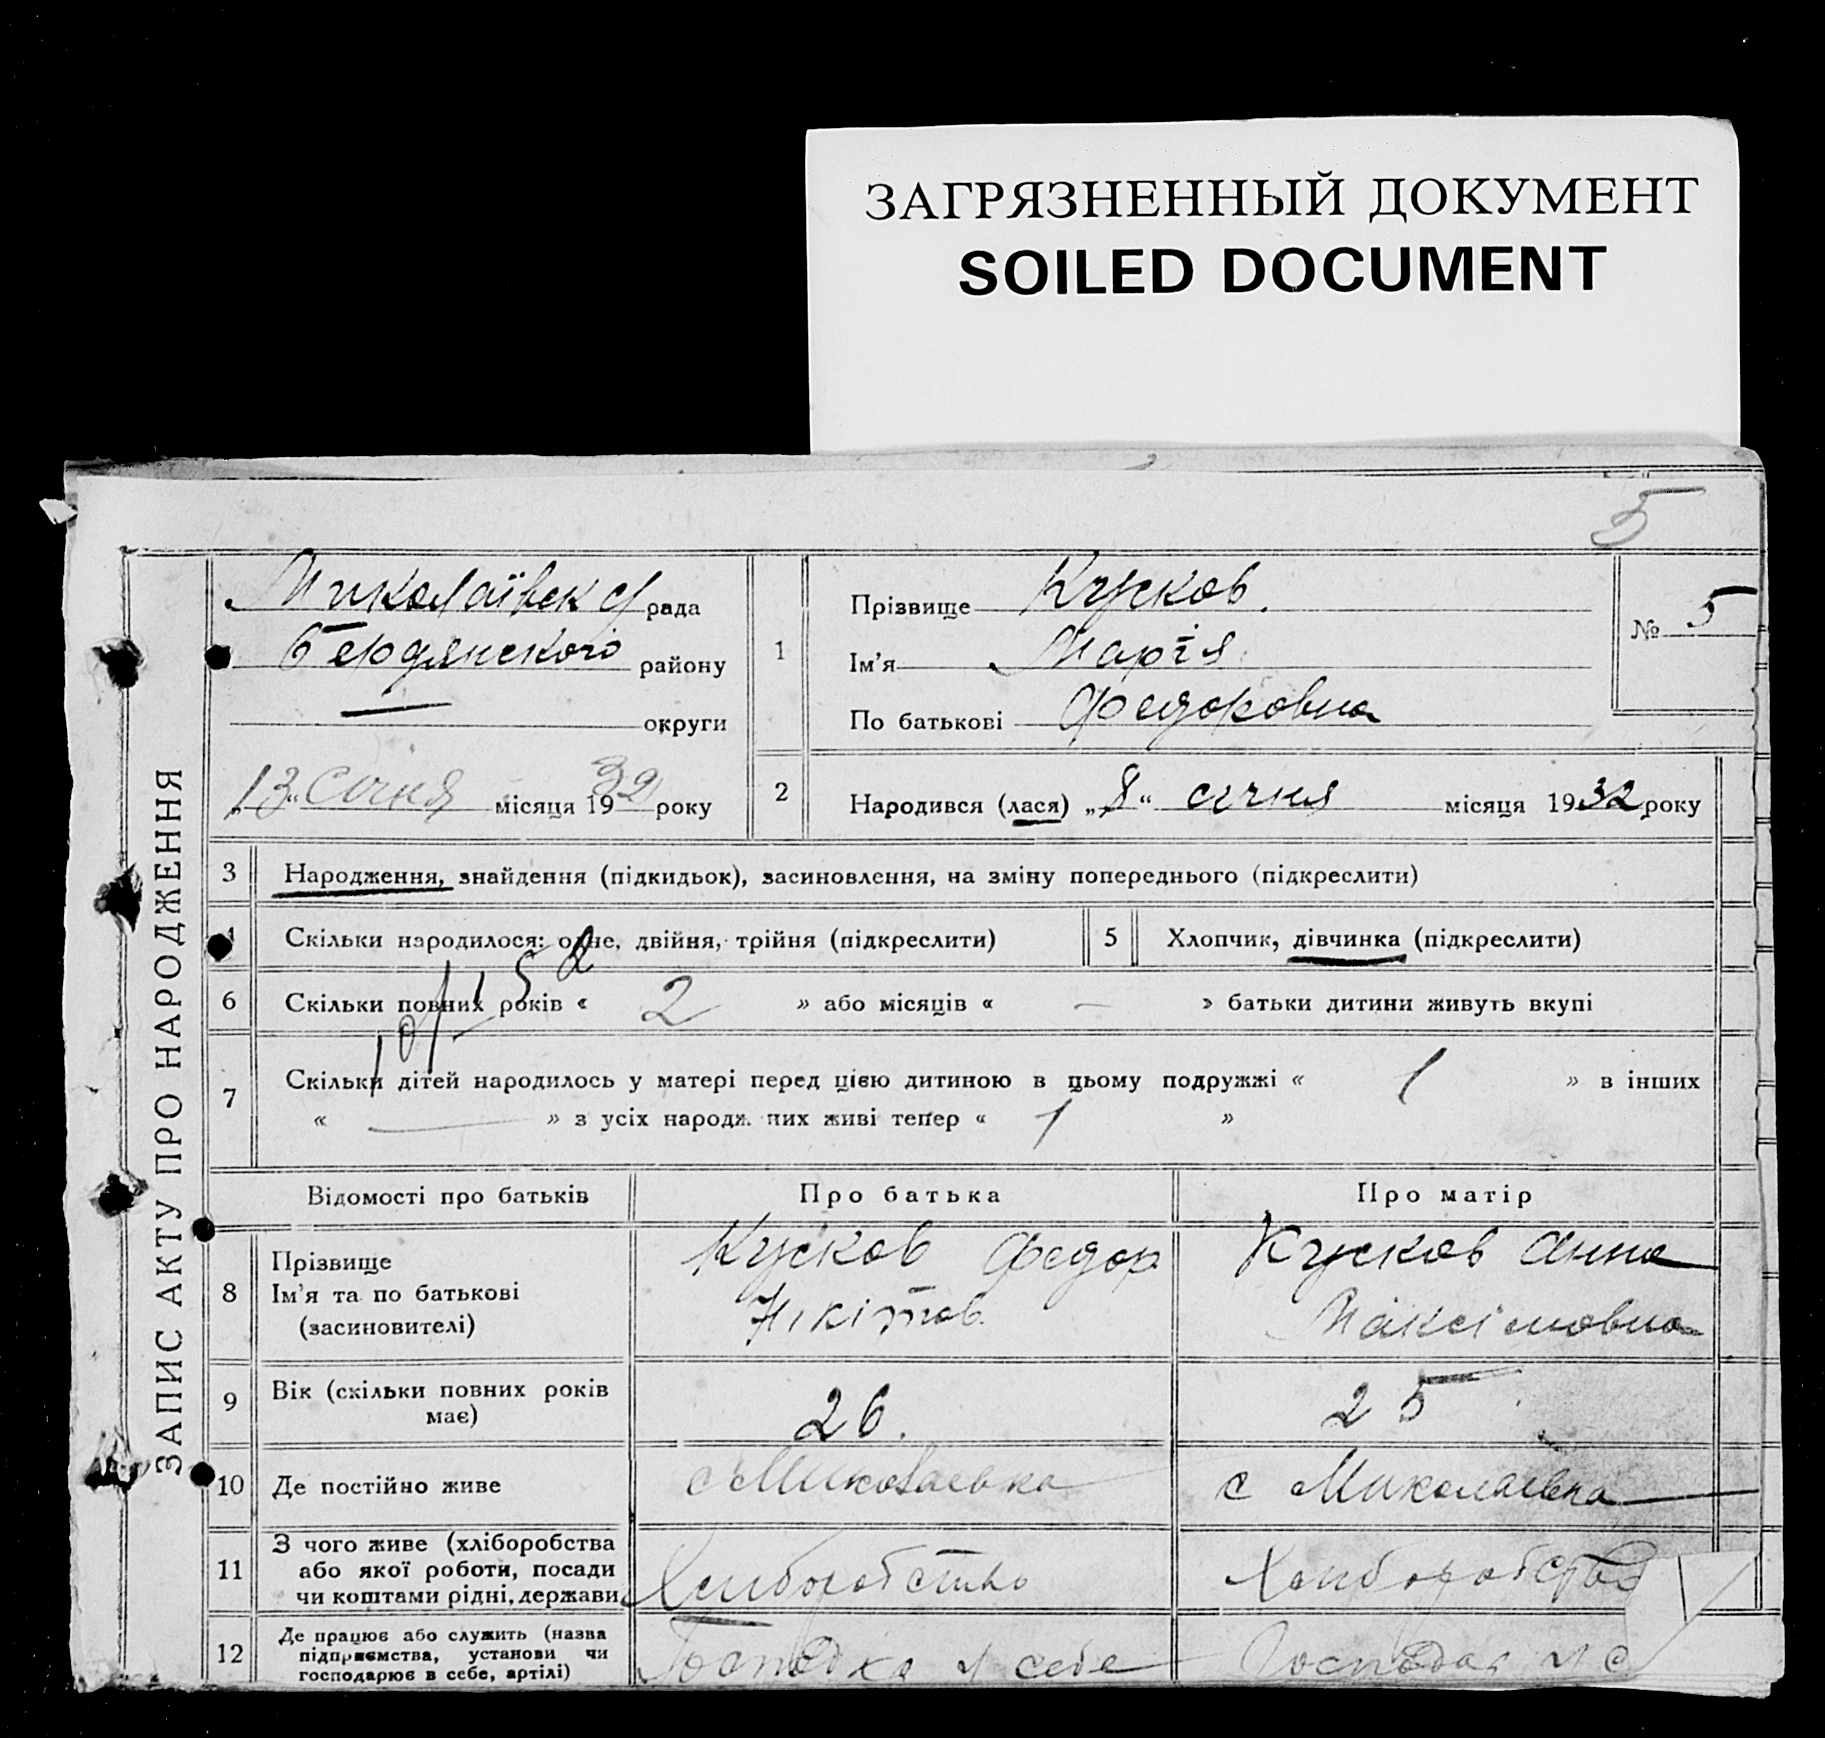 ЗАГРЯЗНЕННЫЙ ДОКУМЕНТ
SOILED DOCUMENT
5
ЗАПИС АКТУ ПРО НАРОДЖЕННЯ
Миколаївск рада
Бердянского району
округи
„13“ Січня місяця 1932 року
1
Прізвище Кусков.
Ім'я Марія
По батькові Федоровна
№ 5
2
Народився (лася) „8“ січня місяця 1932 року
3 Народження, знайдення (підкидьок), засиновлення, на зміну попереднього (підкреслити)
4 Скільки народилося: одне, двійня, трійня (підкреслити)
5 Хлопчик, дівчинка (підкреслити)
6 Скільки повних років « 2 » або місяців « — » батьки дитини живуть вкупі
7 Скільки дітей народилось у матері перед цією дитиною в цьому подружжі « 1 » в інших
« — » з усіх народж. них живі тепер « 1 »
Відомості про батьків Про батька Про матір
8 Прізвище
Ім'я та по батькові
(засиновителі)
Кусков Федор
Нікітов.
Кусков Анна
Максімовна
9 Вік (скільки повних років
має)
26.
25
10 Де постійно живе
с Миколаевка
с Миколаевка
11 З чого живе (хліборобства
або якої роботи, посади
чи коштами рідні, держави
Хлиборобство
Хлиборобство
12 Де працює або служить (назва
підприємства, установи чи
господарює в себе, артілі)
у себе